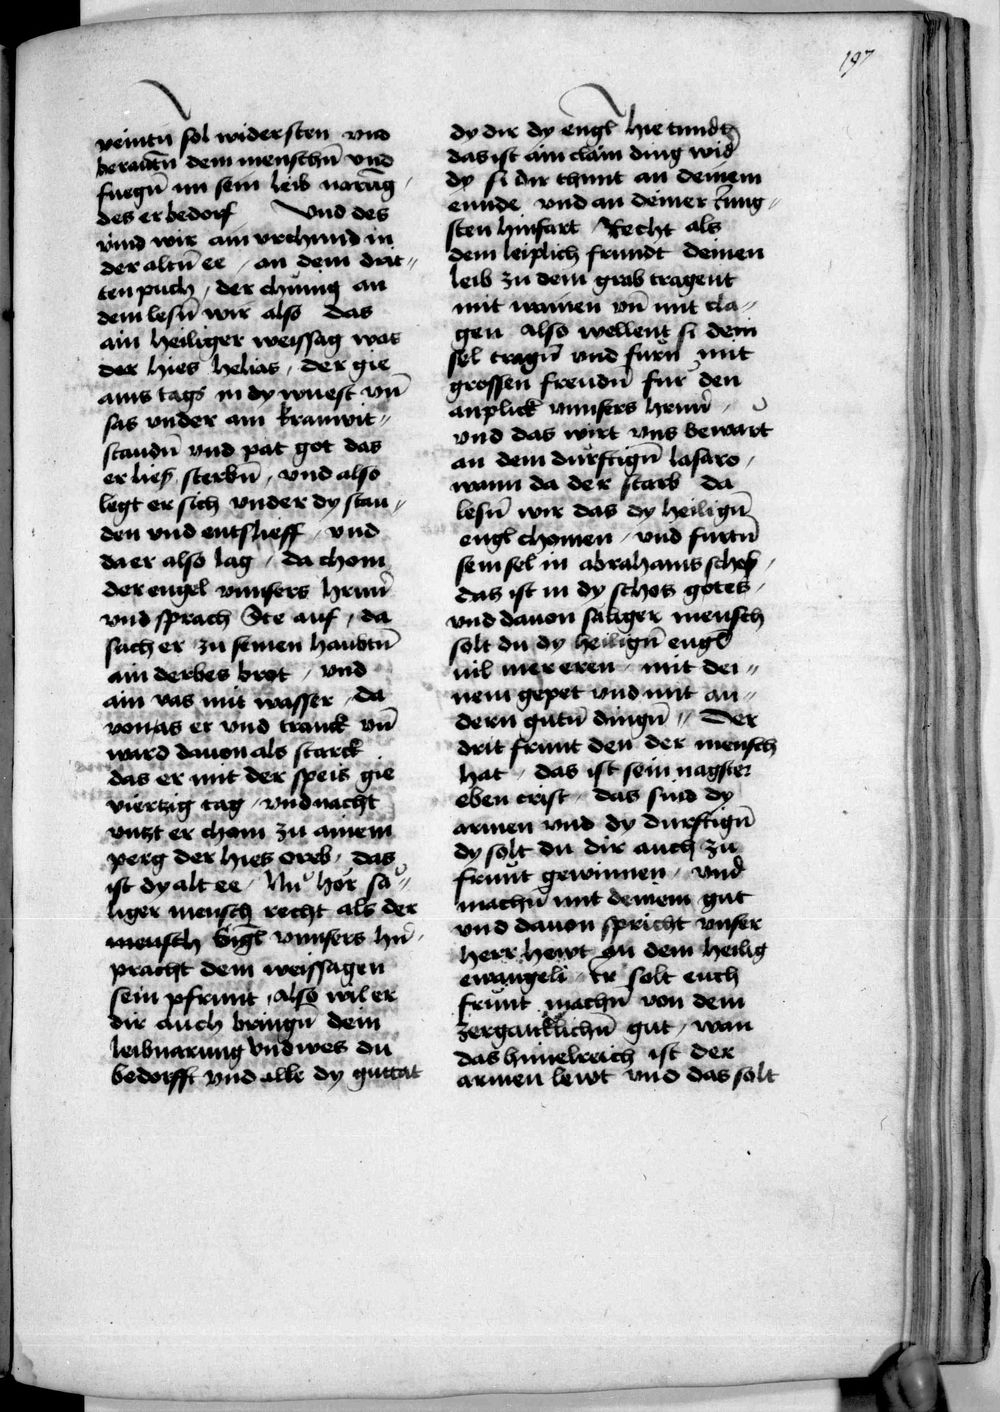 197
veintn̄ sol widersten vnd
beraittn̄ dem menschn̄ vnd
fuegn̄ im sein leib narūg
des er bedorf Vnd des
vind wir ain vrchund in
der altn̄ ee / an dem drit〃
ten puch / der chünig an
dem lesn̄ wir also das
ain heiliger weissag was
der hies helias / der gie
ains tags in dy wuest vn̄
sas vnder ain kranwit〃
staudn̄ vnd pat got das
er lies sterbn̄ / vnd also
legt er sich vnder dy stau〃
den vnd entslieff / vnd
da er also lag / da chom
der engel vnnsers hrnn̄
vnd sprach Ste auf / da
sach er zu seinen haubtn̄
ain derbes brot / vnd
ain vas mit wasser / da
von as er vnd tranck vn̄
ward dauon als starck
das er mit der speis gie
viertzig tag / vnd nacht
vntzt er cham zu ainem
perg der hies oreb / das
ist dy alt ee / Nu hor sa〃
liger mensch recht als der
mensch Engl vnnsers hn̄
pracht dem weissagen
sein pfrunt / also wil er
dir auch bringn̄ dein
leibnarung vnd wes du
bedorfft vnd alle dy guttat
dy dir dy engl hie tundt
das ist ain clain ding wid̄
dy si dir thunt an deinem
ennde vnd an deiner Jung〃
sten hinfart / Recht als
dem leiplich frundt deinen
leib zu dem grab tragent
mit wainen vn̄ mit cla〃
gen also wellent si dein
sel tragn̄ vnd furn̄ mit
grossen freudn̄ fur den
anplick vnnsers hrnn̄ /
vnd das wirt vns bewart
an dem durftign̄ lasaro /
wann da der starb da
lesn̄ wir das dy heilign̄
engl chomen / vnd furtn̄
sein sel in abrahams schos /
das ist in dy schos gotes /
vnd dauon saliger mensch
solt du dy heilign̄ engl
vil mer eren / mit dei〃
nem gepet vnd mit an〃
dern gutn̄ dingn̄ 〃 Der
drit frunt den der mensch
hat / das ist sein nagster
eben crist / das sind dy
armen vnd dy durftign̄
dy solt du dir auch zu
frunt gewinnen / vnd
machn̄ mit deinem gut
vnd dauon spricht vnser
herr hewt an dem heilig
ewangeli / Er solt euch
frunt machn̄ von dem
zergancklichn̄ gut / wan
das himelreich ist der
armen lewt vnd das solt